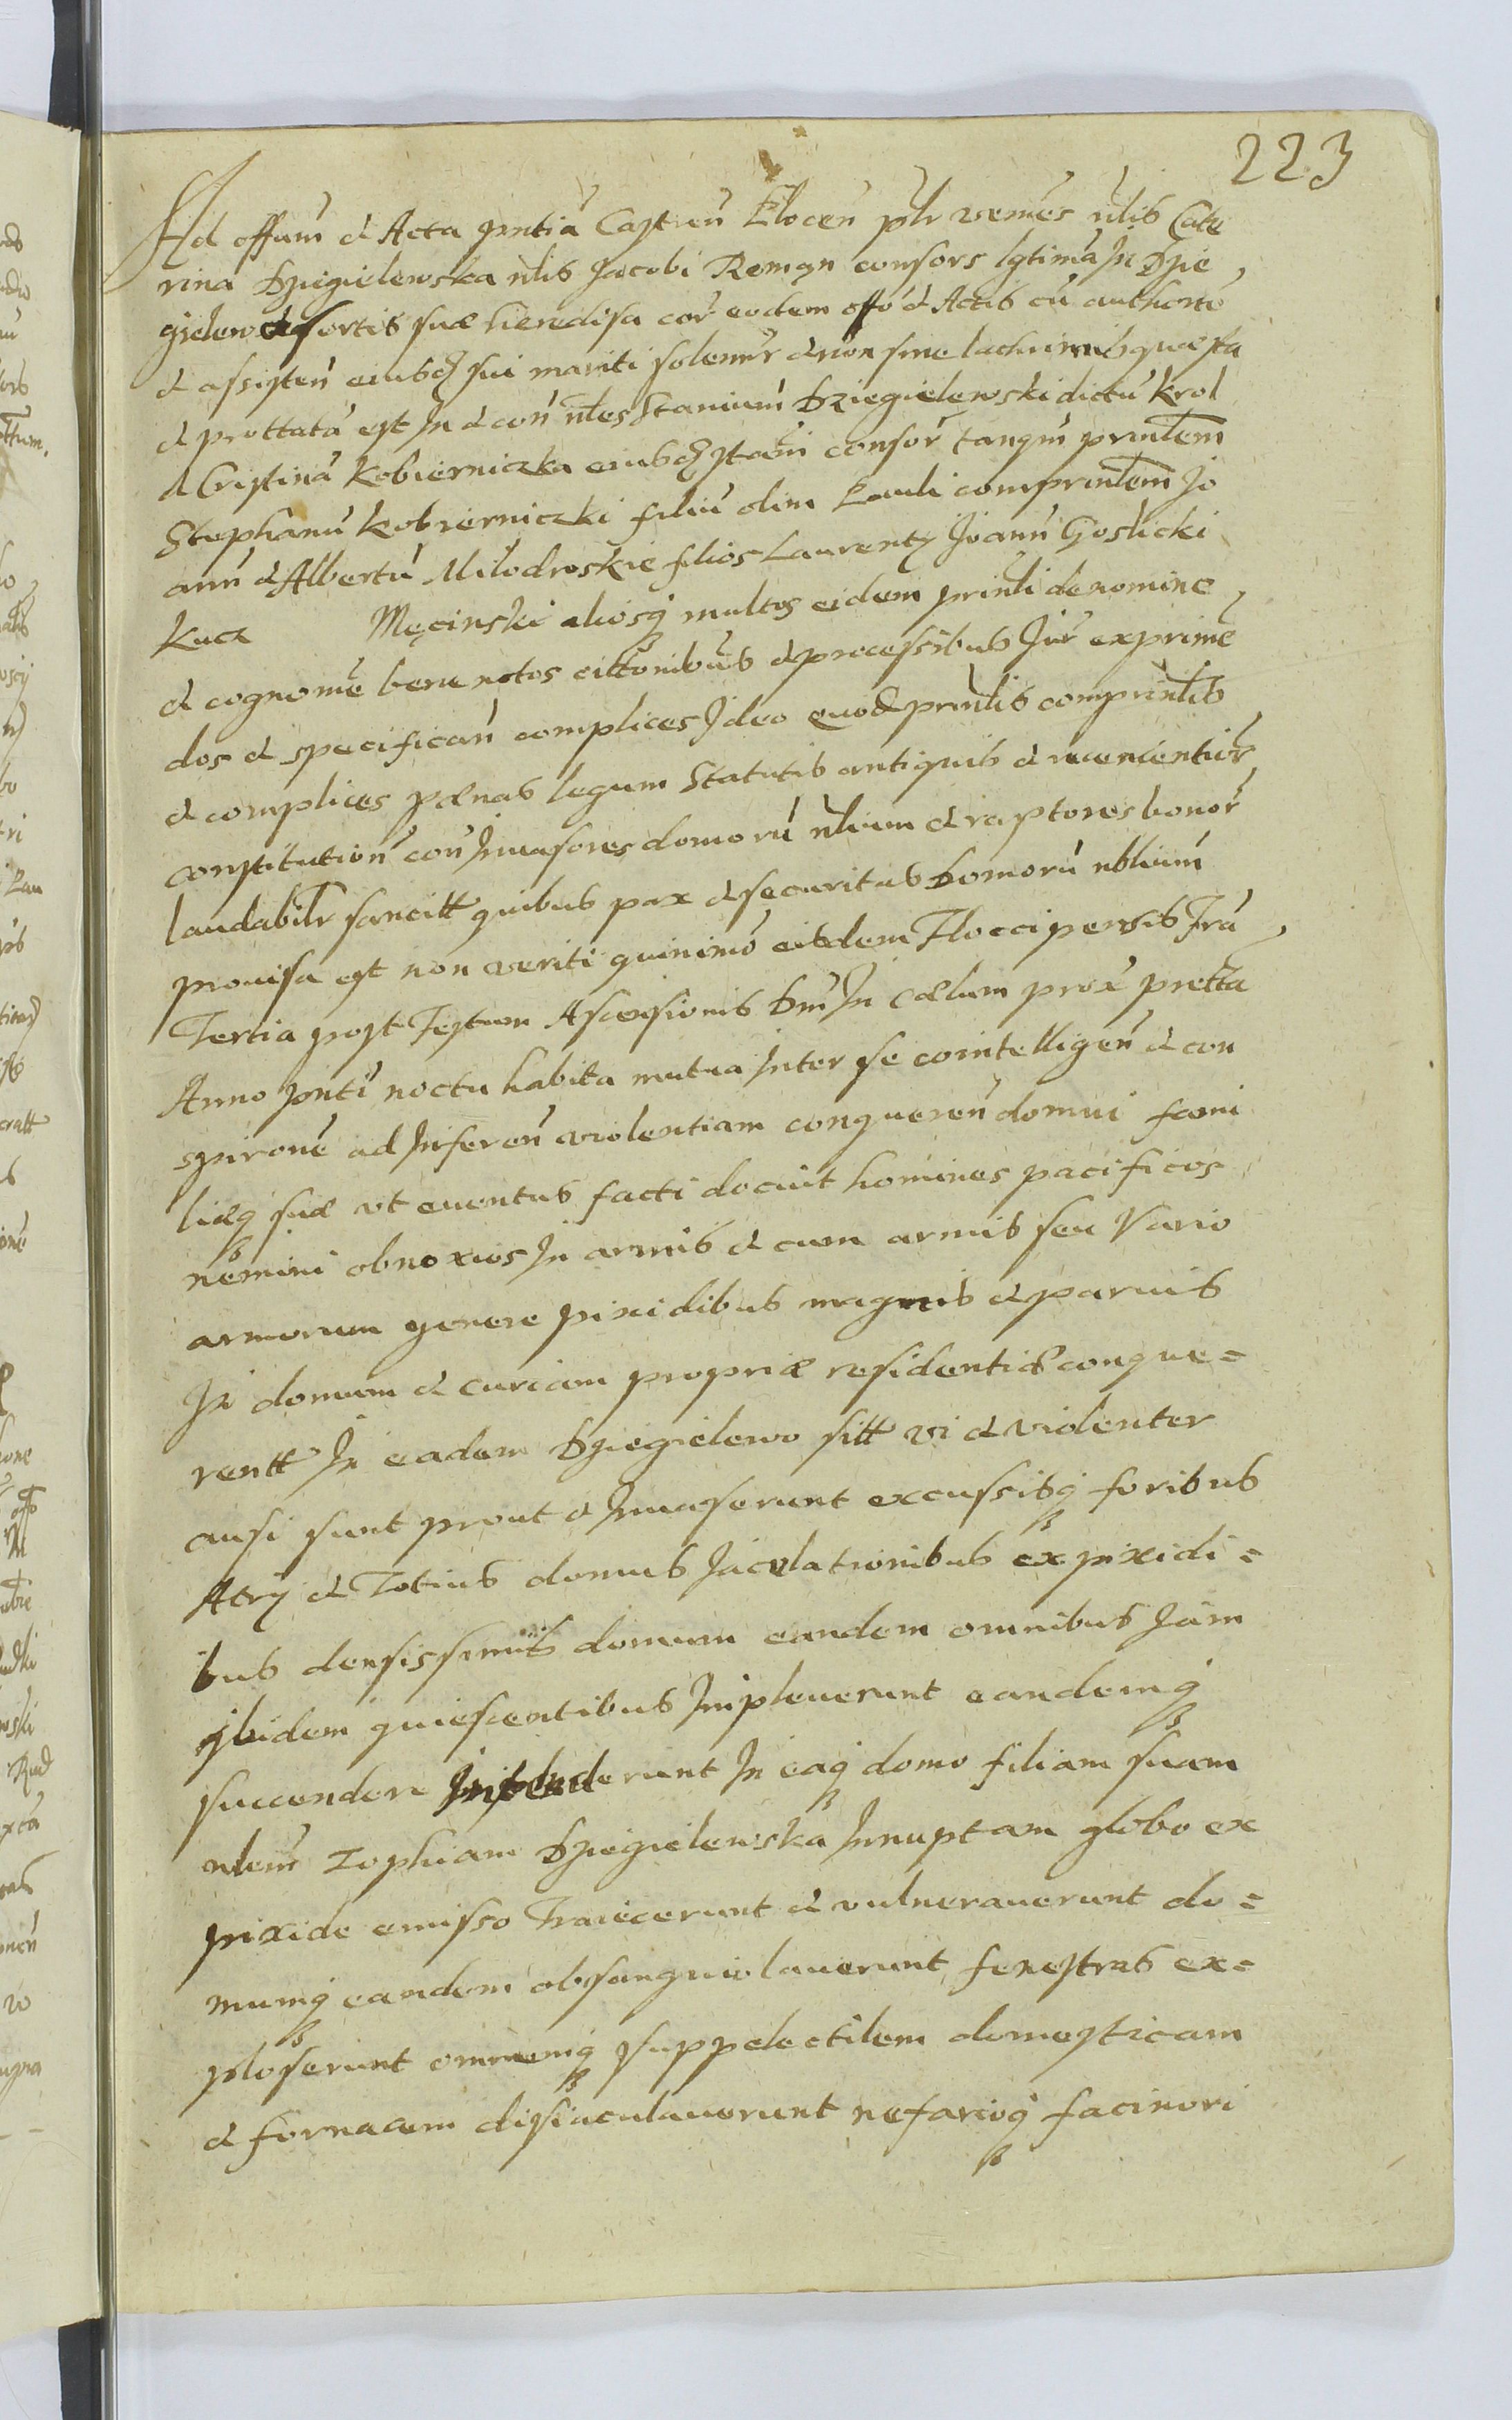 223
Ad offum & Acta pntia Castren Plocen plr veniens nlis Cate
rina Dziegielewska nlis Jacobi Roman consors lgtima In Dzie
gielewo sortis suæ hæredissa cor eodem offo & Actis cu authorte
& assisten eiusdq sui mariti solemr & non sine lachrimis quæsta
& prottata est In & con nles Stanium Dziegielewski dictu Krol
& Cristina Kobierniczka eiusdq Stani consor tanqm prinlem
Stephanu Kobierniczki filiu olim Pauli comprinlem Jo
ann & Albertu Miłodroskie filios Laurentij Joann Goslicki
Kucz Męcinski aliosq multos eidem prinli de nomine
& cognome bene notos cittonibus & processibus Jur exprime
dos & specifican complices Ideo quod prinlis comprinlis
& complices pænas legum Statutis antiquis & recencentior
constitution con Inuasores domoru nlium & raptores bonor
laudabilr sancitt quibus pax & securitas domoru nblium
prouisa est non veriti quinimo eisdem Flocci pensis Fra
Tertia post Festum Ascensionis Dni In Cælum prox pretta
Anno pnti noctu habita mutua Inter se cointelligen & con
spirone ad Inferen violentiam conqueren domui fami
liæq suæ vt euentus facti docuit homines pacificos
nemini obnoxios In armis & cum armis seu Vario
armorum genere pixidibus magnis & paruis
In domum & curiam propriæ residentiæ conque=
rentt In eadem Dziegielewo sitt vi & violenter
ausi sunt prout & Inuaserunt excussisq foribus
Atrij & Totius domus Iaculationibus ex pixidi=
bus densissimis domum eandem omnibus Jam
Ibidem quiescentibus Impleuerunt eandemq
succendere Intenderunt In eaq domo filiam suam
nlem Zophiam Dziegielewska Innuptam globo ex
pixide emisso Traiecerunt & vulnerauerunt do=
mumq eandem obsanguiolauerunt fenestras ex=
ploserunt omnemq suppelectilem domesticam
& fornacem disiaculauerunt nefarioq facinori